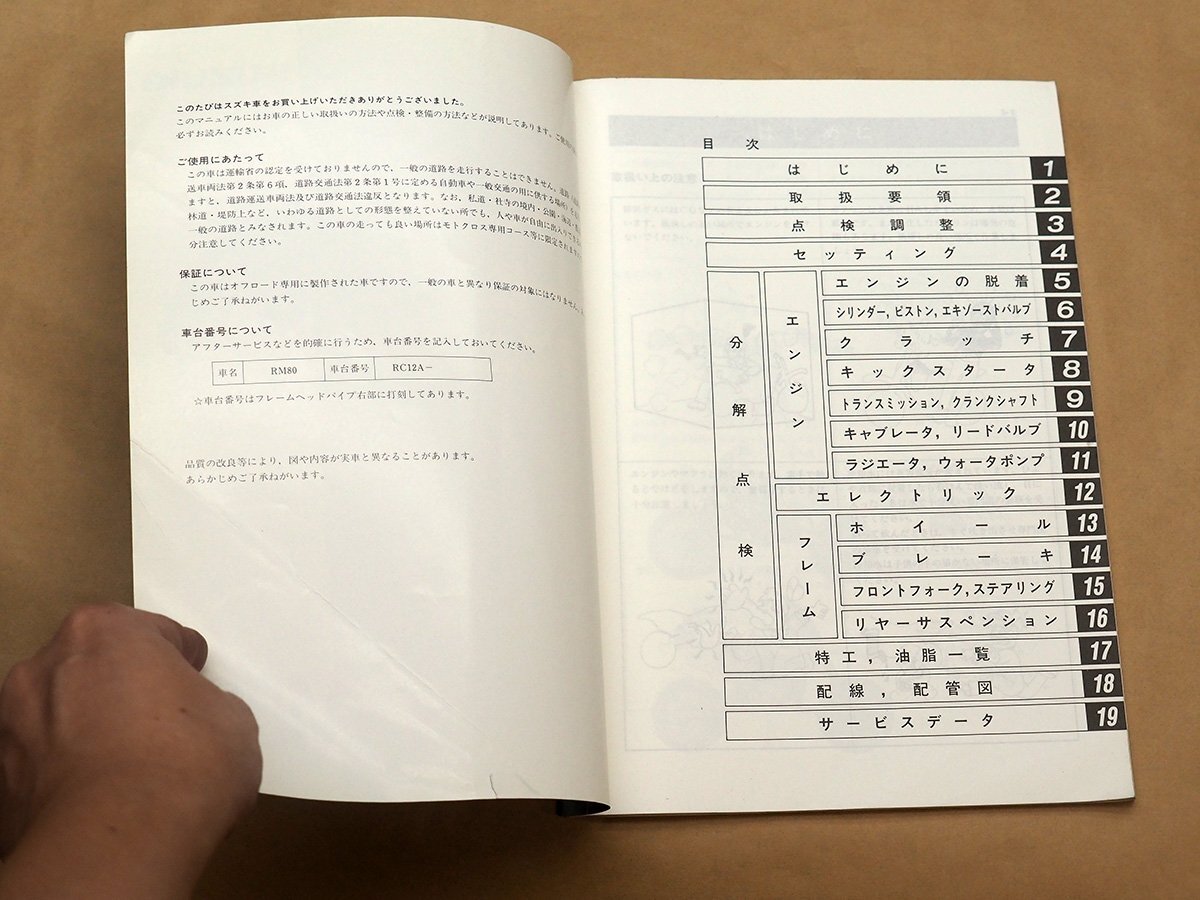 このたびはスズキ車をお買い上げいただきありがとうございました。
このマニュアルにはお車の正しい取扱いの方法や点検・整備の方法などが説明してあります。ご使用の
必ずお読みください。
ご使用にあたって
この車は運輸省の認定を受けておりませんので、一般の道路を走行することはできません。道路
送車両法第2条第6項、道路交通法第2条第1号に定める自動車や一般交通の用に供する場所)を
ますと、道路運送車両法及び道路交通法違反となります。なお、私道・社寺の境内・公園・
林道・堤防上など、いわゆる道路としての形態を整えていない所でも、人や車が自由に出入りできる
一般の道路とみなされます。この車の走っても良い場所はモトクロス専用コース等に限定されますの
分注意してください。
保証について
この車はオフロード専用に製作された車ですので、一般の車と異なり保証の対象にはなりません。
じめご了承ねがいます。
車台番号について
アフターサービスなどを的確に行うため、車台番号を記入しておいてください。
車名 RM80 車台番号 RC12A-
☆車台番号はフレームヘッドパイプ右部に打刻してあります。
品質の改良等により、図や内容が実車と異なることがあります。
あらかじめご了承ねがいます。
目次
はじめに 1
取扱要領 2
点検調整 3
セッティング 4
分解点検
エンジン
エンジンの脱着 5
シリンダー, ピストン, エキゾーストバルブ 6
クラッチ 7
キックスタータ 8
トランスミッション, クランクシャフト 9
キャブレータ, リードバルブ 10
ラジエータ, ウォータポンプ 11
エレクトリック 12
フレーム
ホイール 13
ブレーキ 14
フロントフォーク, ステアリング 15
リヤーサスペンション 16
特工, 油脂一覧 17
配線, 配管図 18
サービスデータ 19